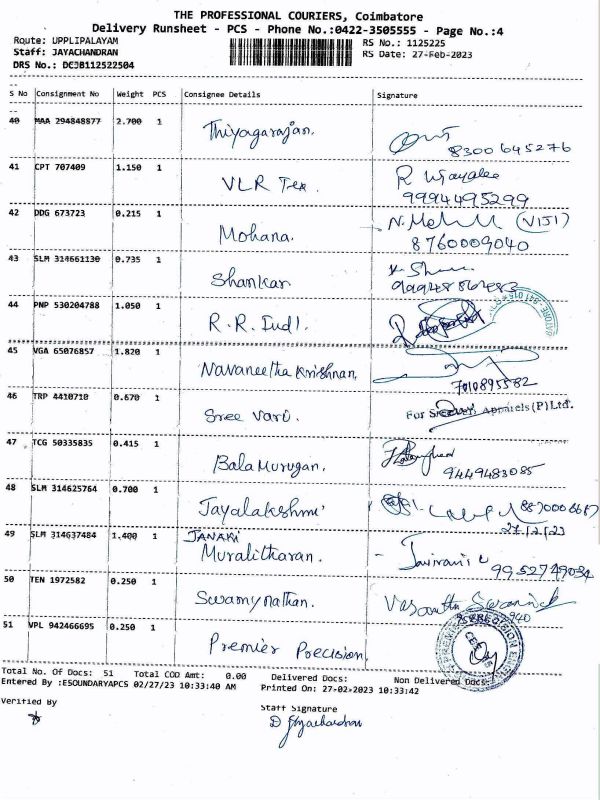 THE PROFESSIONAL COURIERS, Coimbatore
Delivery Runsheet - PCS - Phone No.:0422-3505555 - Page No.:4
Route: UPPLIPALAYAM
Staff: JAYACHANDRAN
DRS No.: DCJB112522504
RS No.: 1125225
RS Date: 27-Feb-2023
S No Consignment No Weight PCS Consignee Details Signature
40 MAA 294848877 2.700 1 Thiyagarajan. 8300645276
41 CPT 707409 1.150 1 VLR Tex. R Vijayalee
9994495299
42 DDG 673723 0.215 1 Mohana. (VIJI)
8760009040
43 SLM 314661130 0.735 1 Shankar
44 PNP 530204788 1.050 1 R.R. Indl.
45 VGA 65076857 1.820 1 Navaneetha Krishnan.
7010895582
46 TRP 4410710 0.670 1 Sree Vari. For Apparels (P) Ltd.
47 TCG 50335835 0.415 1 Bala Murugan.
9449483085
48 SLM 314625764 0.700 1 Jayalakshmi
27/2/23
49 SLM 314637484 1.400 1 JANAKI
Muralitharan. 9952749034
50 TEN 1972582 0.250 1 Swamynathan.
940
51 VPL 942466695 0.250 1 Premier Precision.
Total No. Of Docs: 51 Total COD Amt: 0.00 Delivered Docs: Non Delivered Docs:
Entered By :ESOUNDARYAPCS 02/27/23 10:33:40 AM Printed On: 27-02-2023 10:33:42
Verified By
Staff Signature